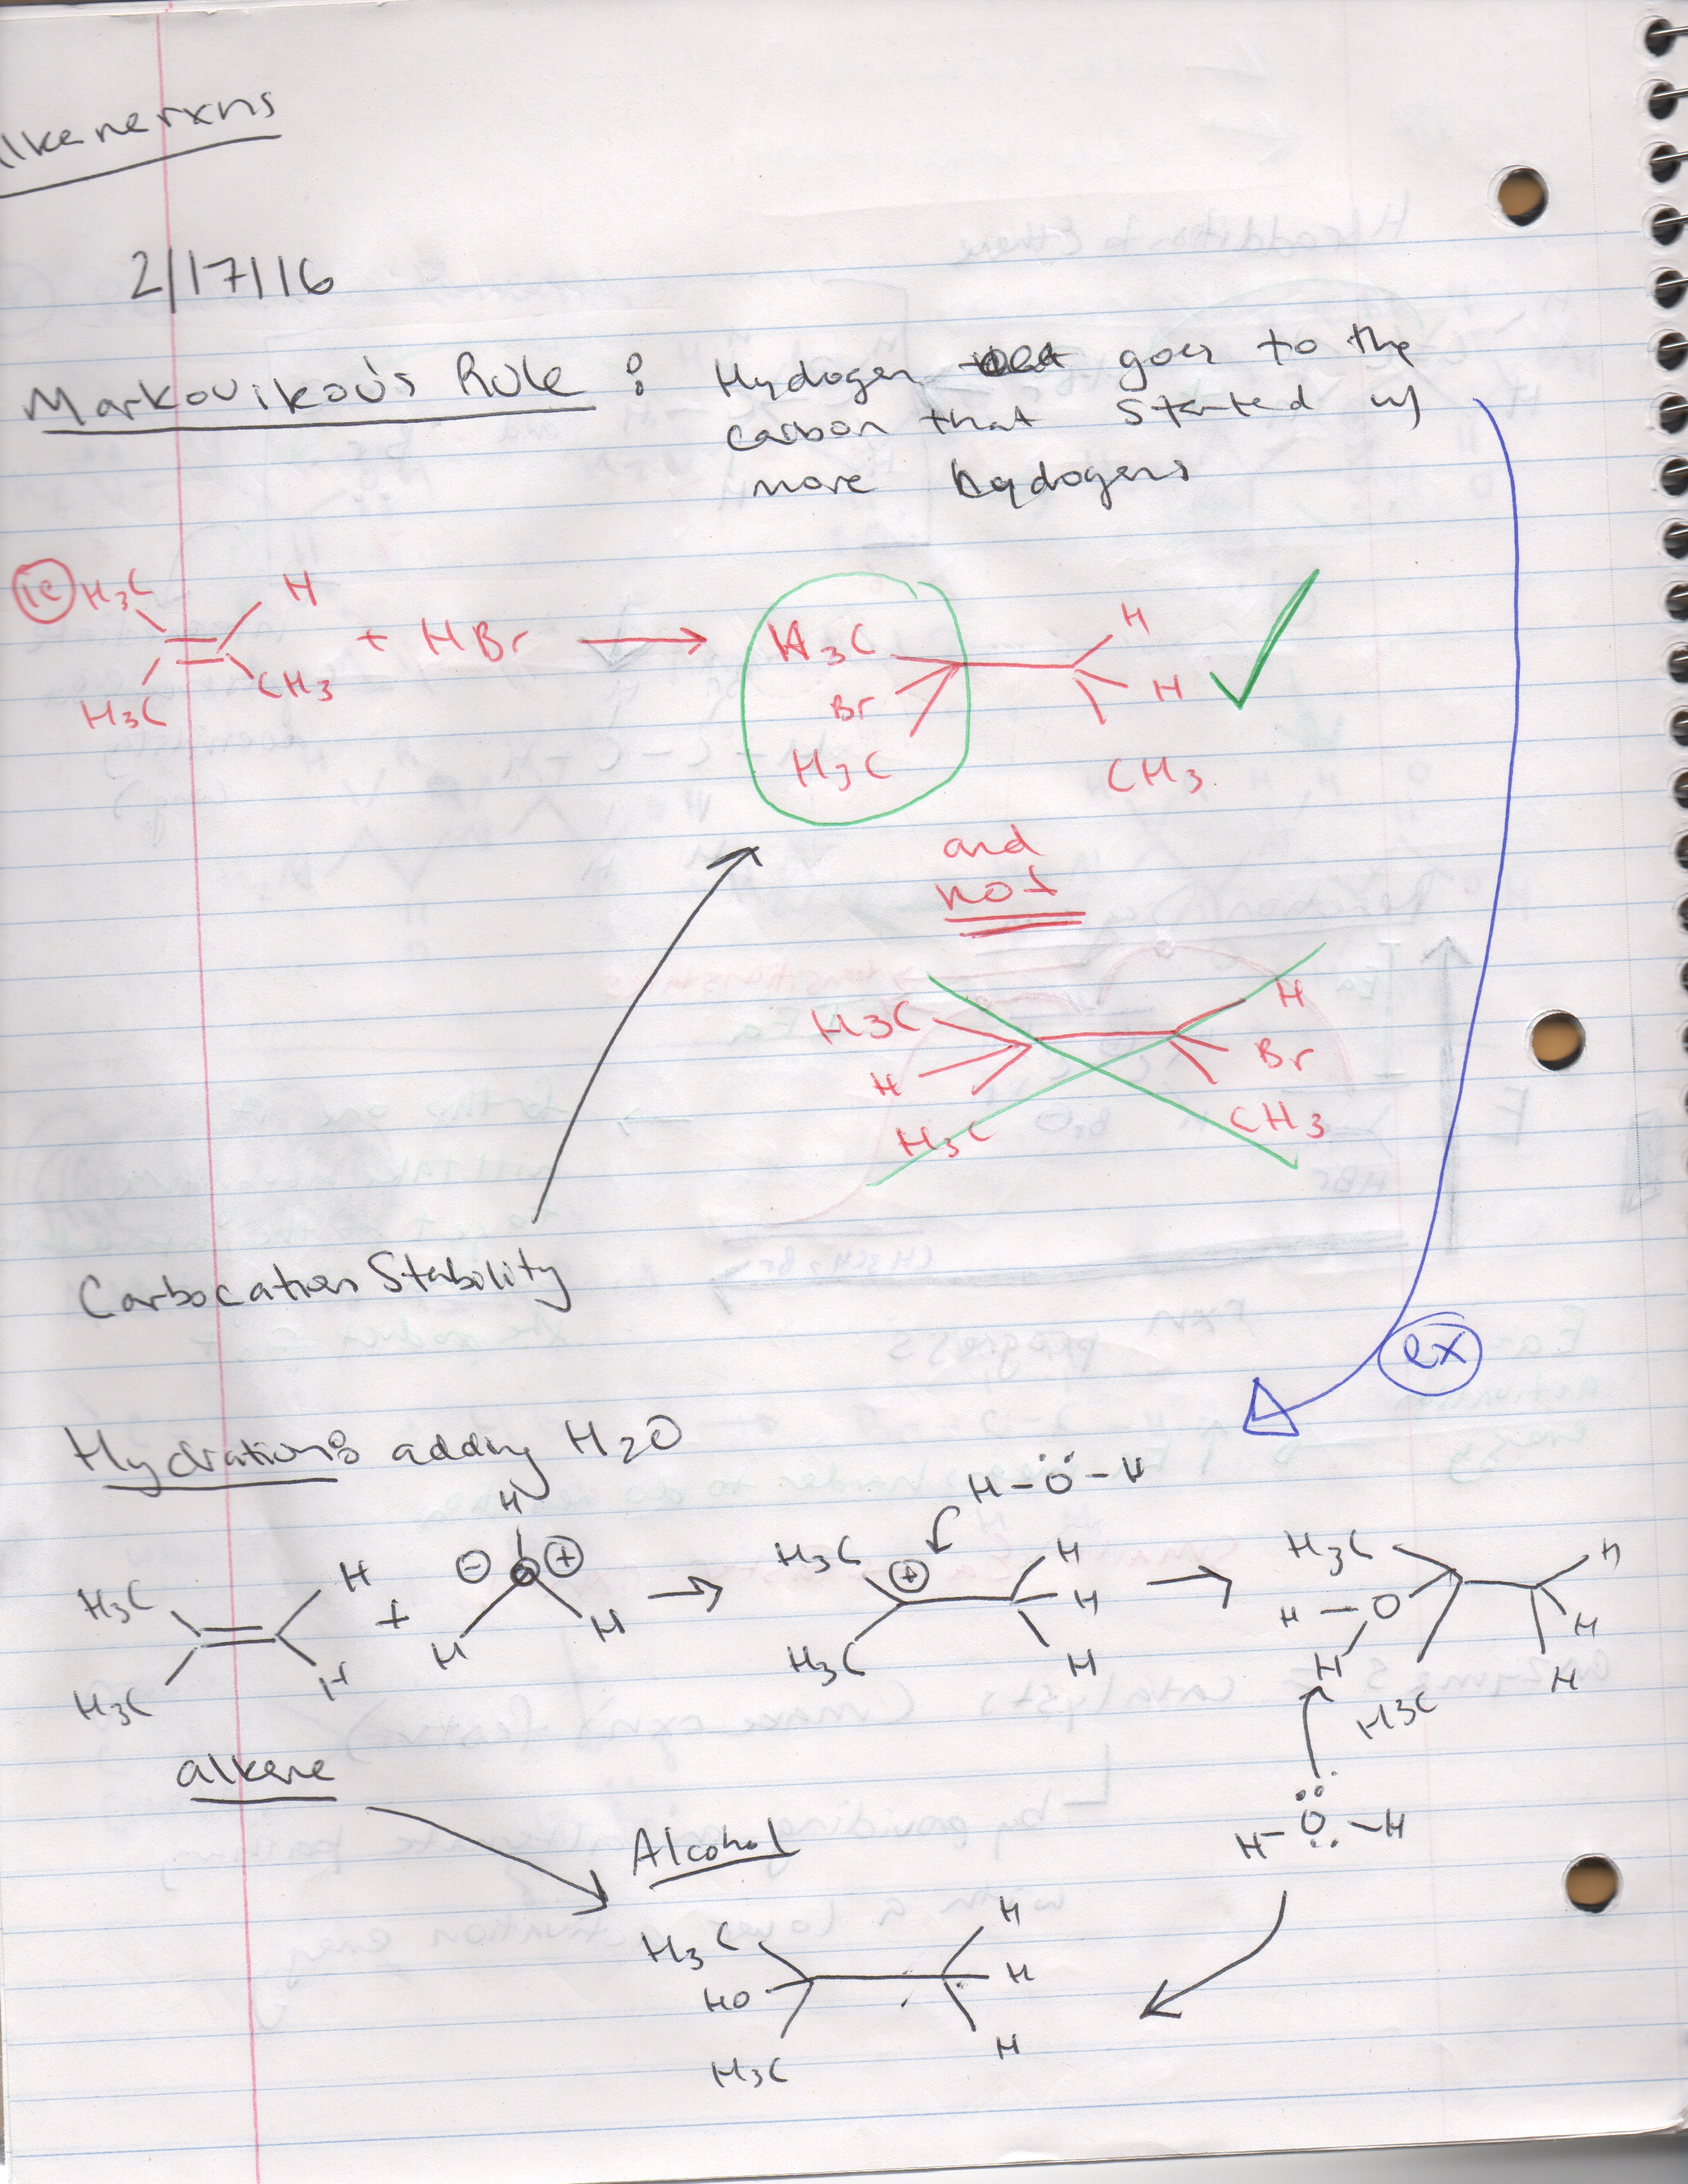 lkenerxns
2/17/16
Markovikov's Rule : Hydogen goes to the
carbon that started w/
more hydogens
ie H3C H
+ HBr → H3C H
H3C CH3 Br H
H3C CH3
and
not
H3C H
H Br
H3C CH3
Carbocation Stability
ex
Hydration: adding H2O
H-O-H
H
H3C H + ⊖ O ⊕ → H3C ⊕ H → H3C H
H H H H-O H
H3C H H3C H H H
H3C
alkene
H-O-H
Alcohol
H3C H
HO H
H3C H